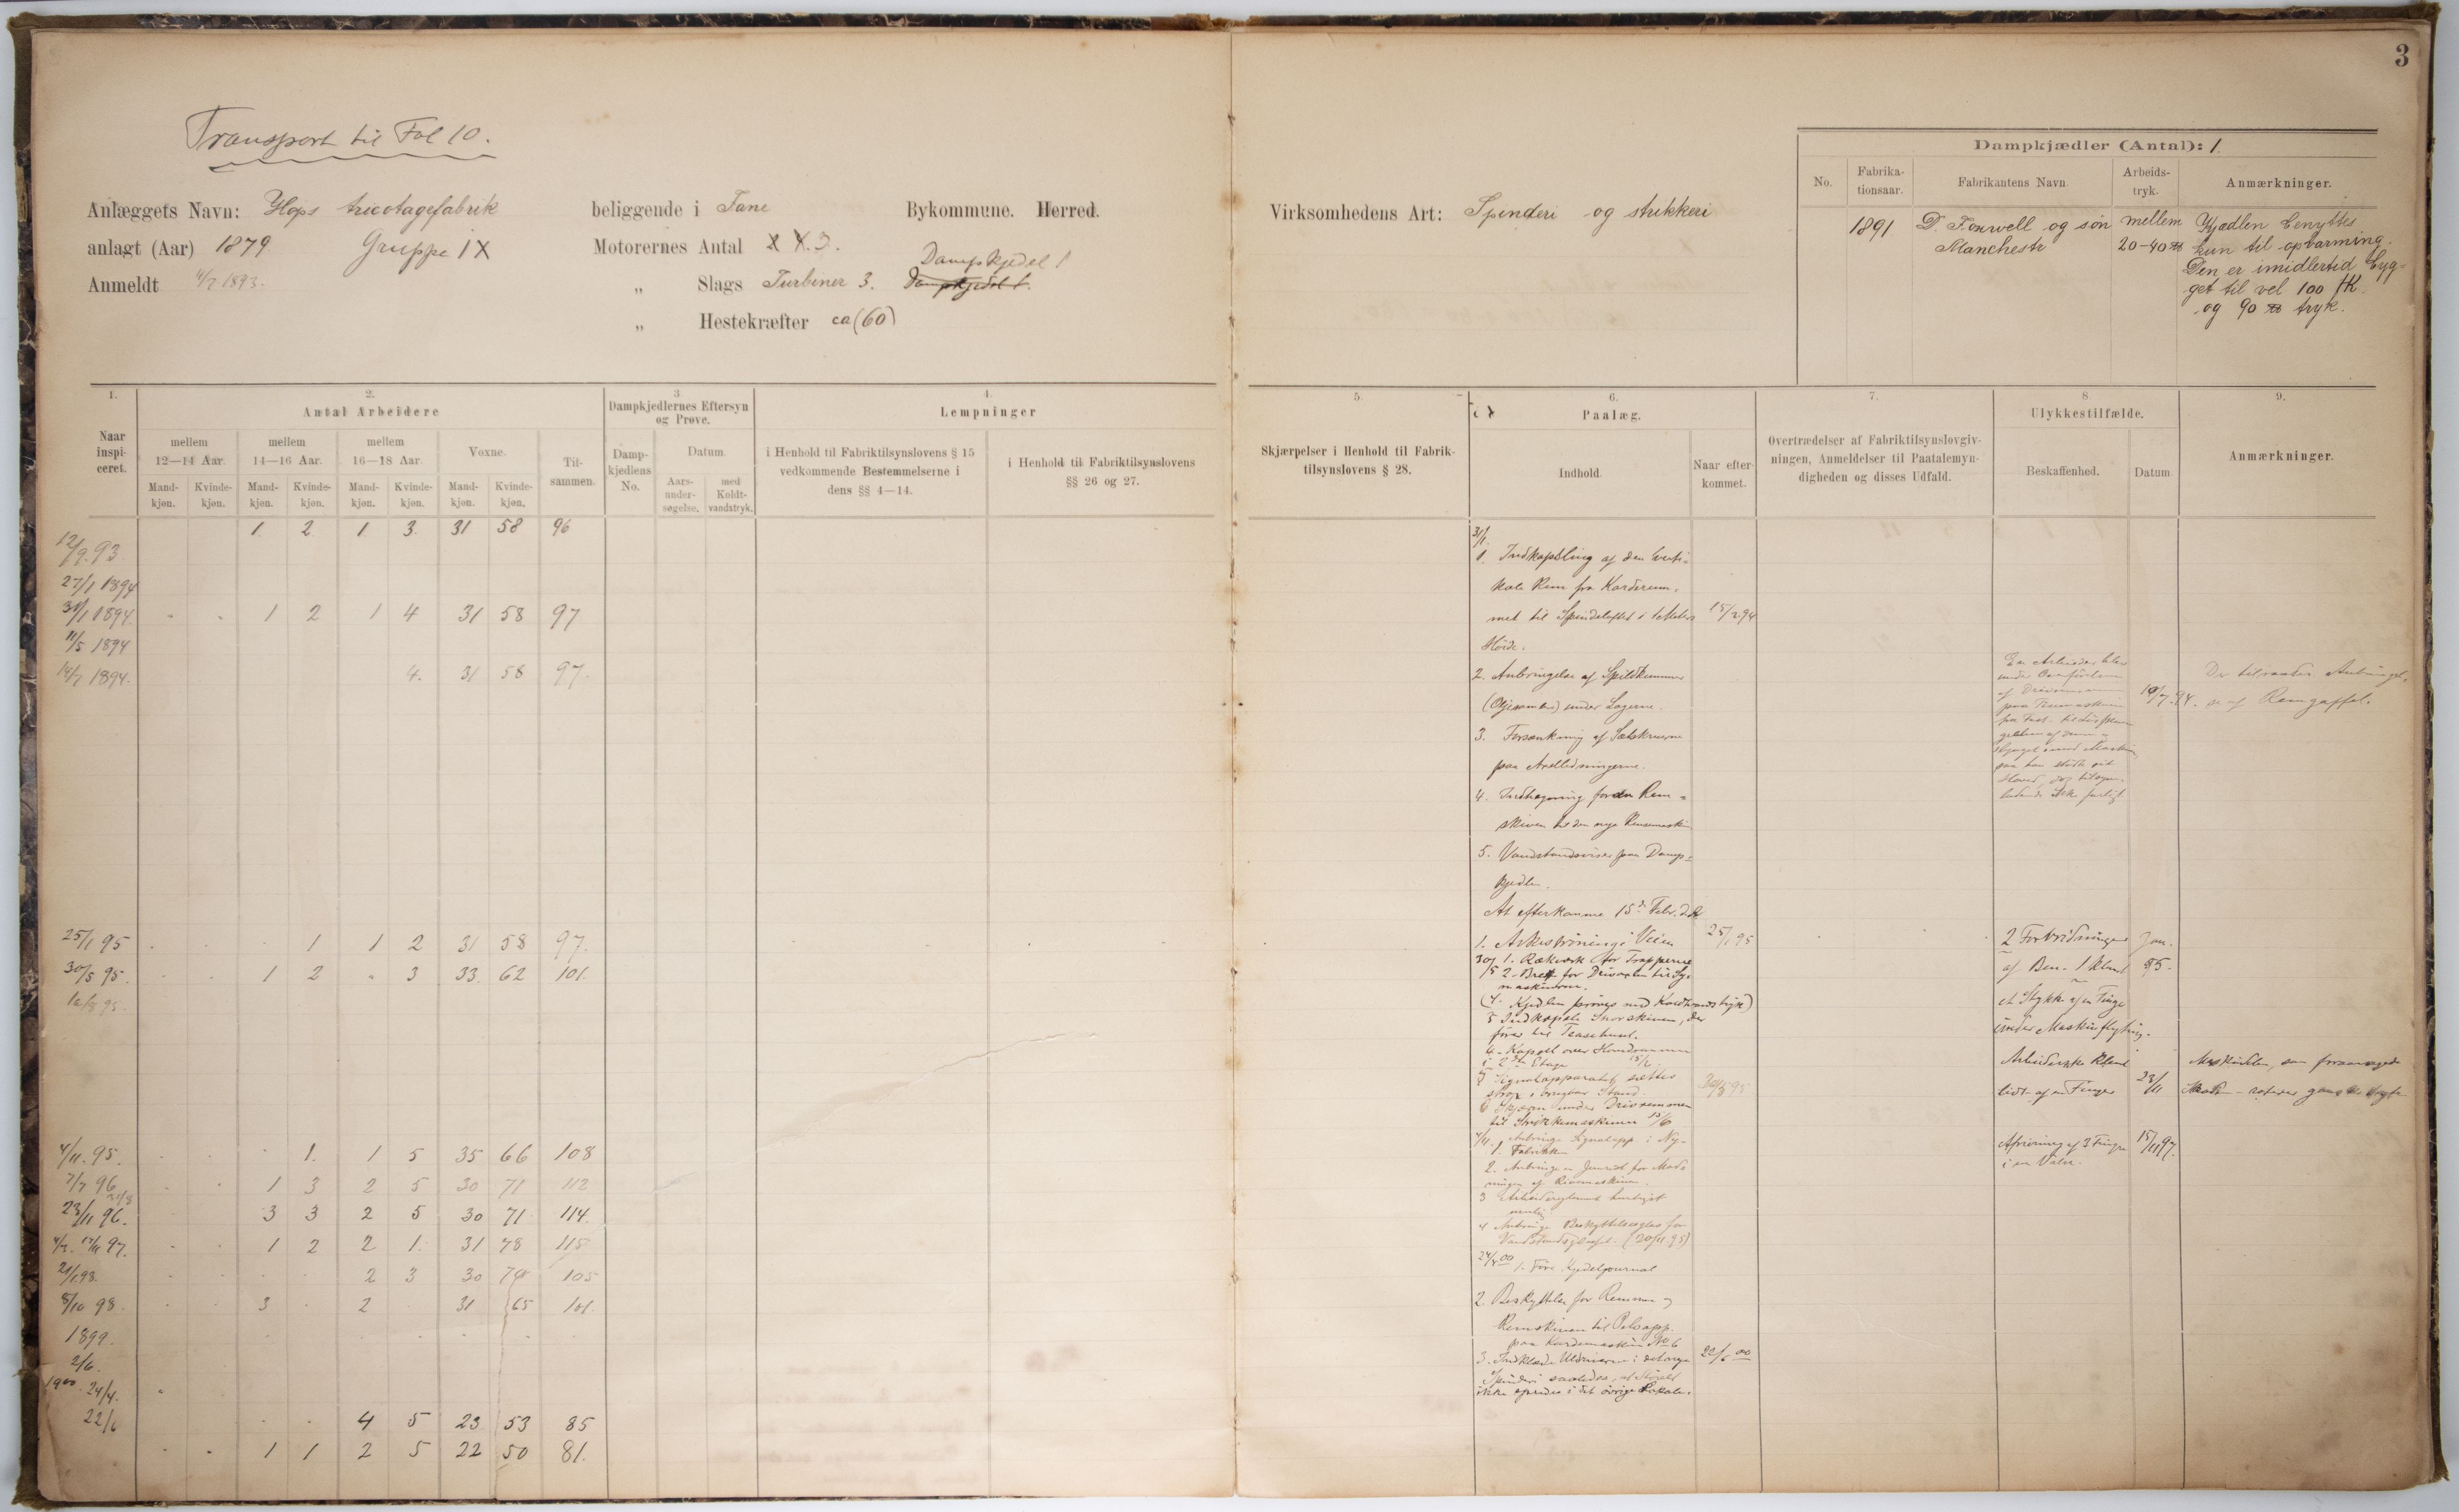 3
Transport til Fol 10.
Anlæggets Navn: Hops tricotagefabrik beliggende i Fane Bykommune. Herred.
anlagt (Aar) 1879 Gruppe IX Motorernes Antal 3.
Anmeldt 4/7 1893. „ Slags Turbiner 3. Dampkjedel 1
Dampkjedel 1.
„ Hestekræfter ca (60)
Virksomhedens Art: Spinderi og strikkeri
Dampkjædler (Antal): 1
No. Fabrika-tionsaar. Fabrikantens Navn. Arbeids-tryk. Anmærkninger.
1891 D. Foxwell og søn mellem Kjædlen benyttes
Manchester 20-40 kun til opvarming.
Den er imidlertid byg-
get til vel 100 HK.
og 90 tryk.
1. 2. 3. 4.
Naar inspi-ceret. Antal Arbeidere Dampkjedlernes Eftersyn og Prøve. Lempninger
mellem 12—14 Aar. mellem 14—16 Aar. mellem 16—18 Aar. Voxne. Til-sammen.
Damp-kjedlens No. Datum.
i Henhold til Fabriktilsynslovens § 15 vedkommende Bestemmelserne i dens §§ 4—14.
i Henhold til Fabriktilsynslovens §§ 26 og 27.
Mand-kjøn. Kvinde-kjøn. Mand-kjøn. Kvinde-kjøn. Mand-kjøn. Kvinde-kjøn. Mand-kjøn. Kvinde-kjøn.
Aars-under-søgelse. med Koldt-vandstryk.
1 2 1 3 31 58 96
12/9.93
27/1 1894
31/1 1894. 1 2 1 4 31 58 97
11/5 1894
14/7 1894. 4. 31 58 97.
25/1 95 1 1 2 31 58 97.
30/5 95. 1 2 " 3 33. 62 101.
4/11.95. 1. 1 5 35 66 108
7/7 96 1 3 2 5 30 71 112
23/11 96. 3 3 2 5 30 71 114.
97. 1 2 2 1. 31 78 115
21/1 98. 2 3 30 70 105
8/10 98. 3 2 31 65 101.
1899.
2/6.
1900. 24/4.
22/6 4 5 23 53 85
1 1 2 5 22 50 81.
5. 6. 7. 8. 9.
Skjærpelser i Henhold til Fabrik-
tilsynslovens § 28.
Paalæg.
Indhold. Naar efter-kommet.
Overtrædelser af Fabriktilsynslovgiv-
ningen, Anmeldelser til Paatalemyn-
digheden og disses Udfald.
Ulykkestilfælde.
Beskaffenhed. Datum.
Anmærkninger.
31/1.
1. Indkapsling af den verti-
kale Rem fra Karderum-
met til Spindeloftet i 1 Meters 15/2 94
Høide.
2. Anbringelse af Spildkummer
(Oljesamlere) under Lagerne.
3. Forsænkning af Sætskruerne
paa Axelledningerne.
4. Indhegning foran Rem-
skiven til den nye Rensemaskin
5. Vandstandsviser paa Damp-
kjedlen.
At efterkomme 15de Febr. d.A.
En Arbeider blev
under Overførelsen
af Drivremmen
10/7.94.
De tilraades Anbringel-
se af Remgaffel.
1. i Veien 25/1 95
30/5 1. Rækværk for Trapperne
2. Bret for Drivaxlen til Sy-
maskinerne.
(4. Kjedlen prøves med Koldtvandstryk)
3 Indkapsle Snorskiven, der
fører til
4. Kapsel over Hovedremmen
i 2den Etage 15/7
5 Signalapparatet sættes
strax i brugbar Stand. 30/5 95
6 Skjærm under Drivremmen
til Strikkemaskinen 15/6
2 Forvridninger Jan.
af Ben. 1 klemt 95.
et Stykke af en Finger
under Maskinflytning.
Arbeiderske klemt
lidt af en Finger 23/11
Maskindelen, som foraarsagede
Skaden - roterer ganske
Afrivning af 3 Fingre 15/11 97.
i en Valse.
4/11. Anbringe Signalapp. i Ny-
1. Fabrikken
2. Anbringe en
3 Arbeidsreglement
4 Anbringe Beskyttelsesglas for
Vandstandsglasset. (20/11.95)
24/4 00
1. Føre Kjedeljournal
2. Beskyttelse for Remme og
Remskiven til
paa Kardemaskin No 6
3. Indklæde i det nye 22/6 00
Spinderi saaledes, at Støvet
ikke spredes i det øvrige Lokale.